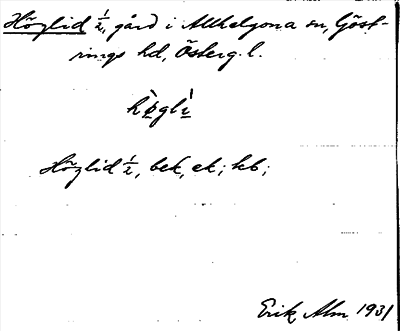 Höglid 1/2, gård i Allhelgona sn, Göst-
rings hd, Österg. l.
hø̀glì
Höglid 1/2, bek, ek; kb;
Erik Alm 1931